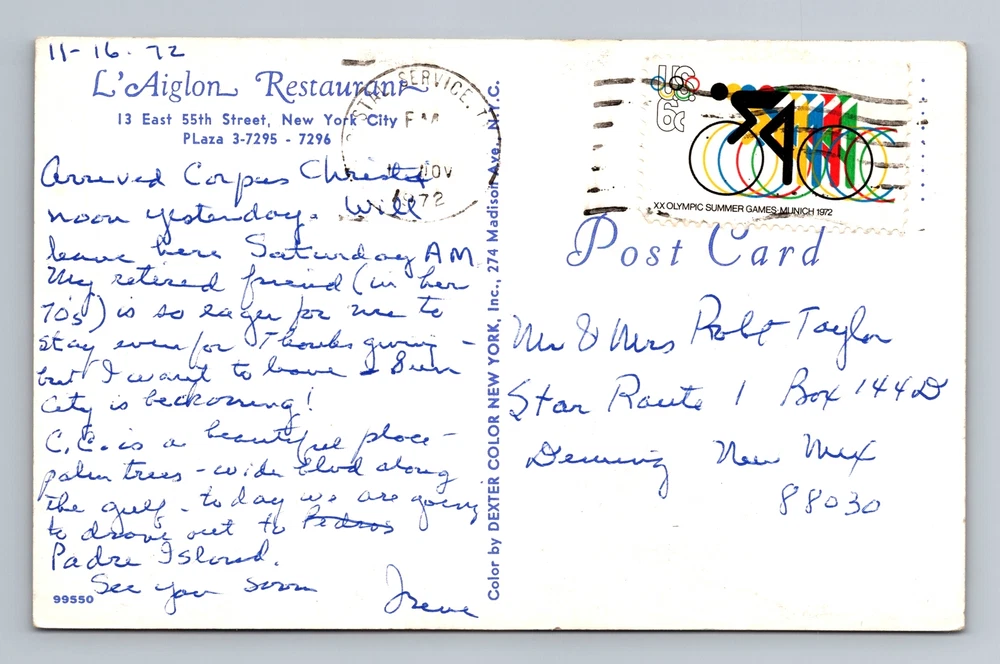 11-16-72
L'Aiglon Restaurant
13 East 55th Street, New York City
PLaza 3-7295 - 7296
Arrived Corpus Christi
noon yesterday. Will
leave here Saturday AM
My retired friend (in her
70s) is so eager for me to
stay even for Thanksgiving -
but I want to leave & Sun
City is beckoning!
C.C. is a beautiful place -
palm trees - wide blvd along
the gulf - today we are going
to drove out to Pedros
Padre Island.
See you soon
Irene
99550
Color by DEXTER COLOR NEW YORK, Inc., 274 Madison Ave., N.Y.C.
POSTAL SERVICE, T
PM
NOV
1972
US
6c
XX OLYMPIC SUMMER GAMES·MUNICH 1972
Post Card
Mr & Mrs Robt Taylor
Star Route 1 Box 144D
Deming New Mex
88030